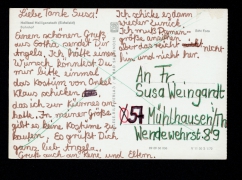 Liebe Tante Susa!
Einen schönen Gruß
aus Gotha sendet Dir
Angela. Ich hätte einen
Wunsch, könntest Du
mir bitte einmal
das Kostüm von Onkel
Klaus schicken
das ich zur
halte. In meiner Größe
gibt es keine Kostüme zu
kaufen. Es grüßt Dich
ganz lieb Angela.
Gruß auch an Jane und Eltern.
Ich schicke es dann
wieder zurück.
Ich muß
größe
aber das reicht nicht
hin und nicht her.
An Fr.
Susa Weingardt
X 57 Mühlhausen/Th
Wendewehrst. 89